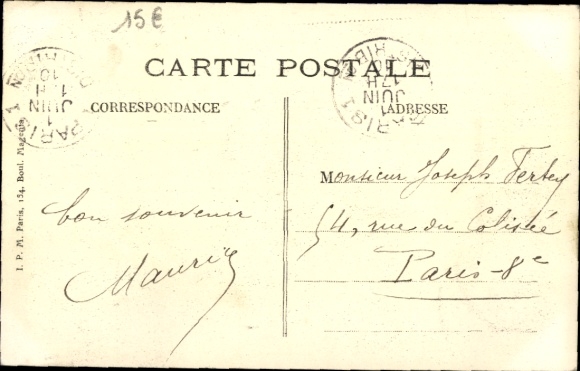 15€
CARTE POSTALE
CORRESPONDANCE
ADRESSE
bon souvenir
Monsieur Joseph
54, rue du Colisée
Paris-8e
I. P. M. Paris, 154, Boul. Magenta
PARIS 1
JUIN
17H
DISTRIBUTION
PARIS
JUIN
10